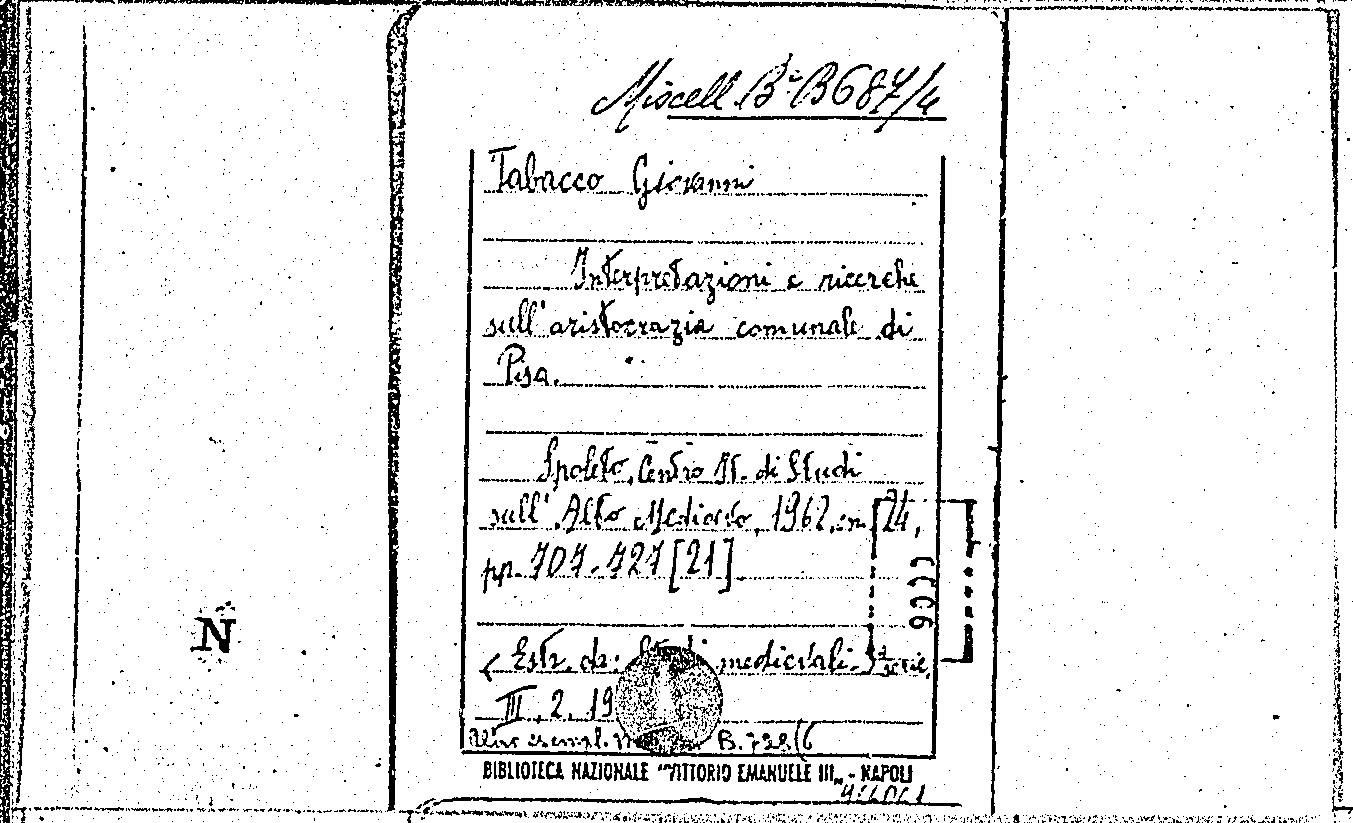 Miscell. Bª B687/4
Tabacco Giovanni
Interpretazioni e ricerche
sull'aristocrazia comunale di
Pisa.
Spoleto, Centro It. di Studi
sull'Alto Medioevo, 1962, cm. 24,
pp. 707-727 [21].
(Estr. da: medievali. serie,
III, 2, 19
Altro esempl. B. 728/6
BIBLIOTECA NAZIONALE "VITTORIO EMANUELE III" - NAPOLI
N